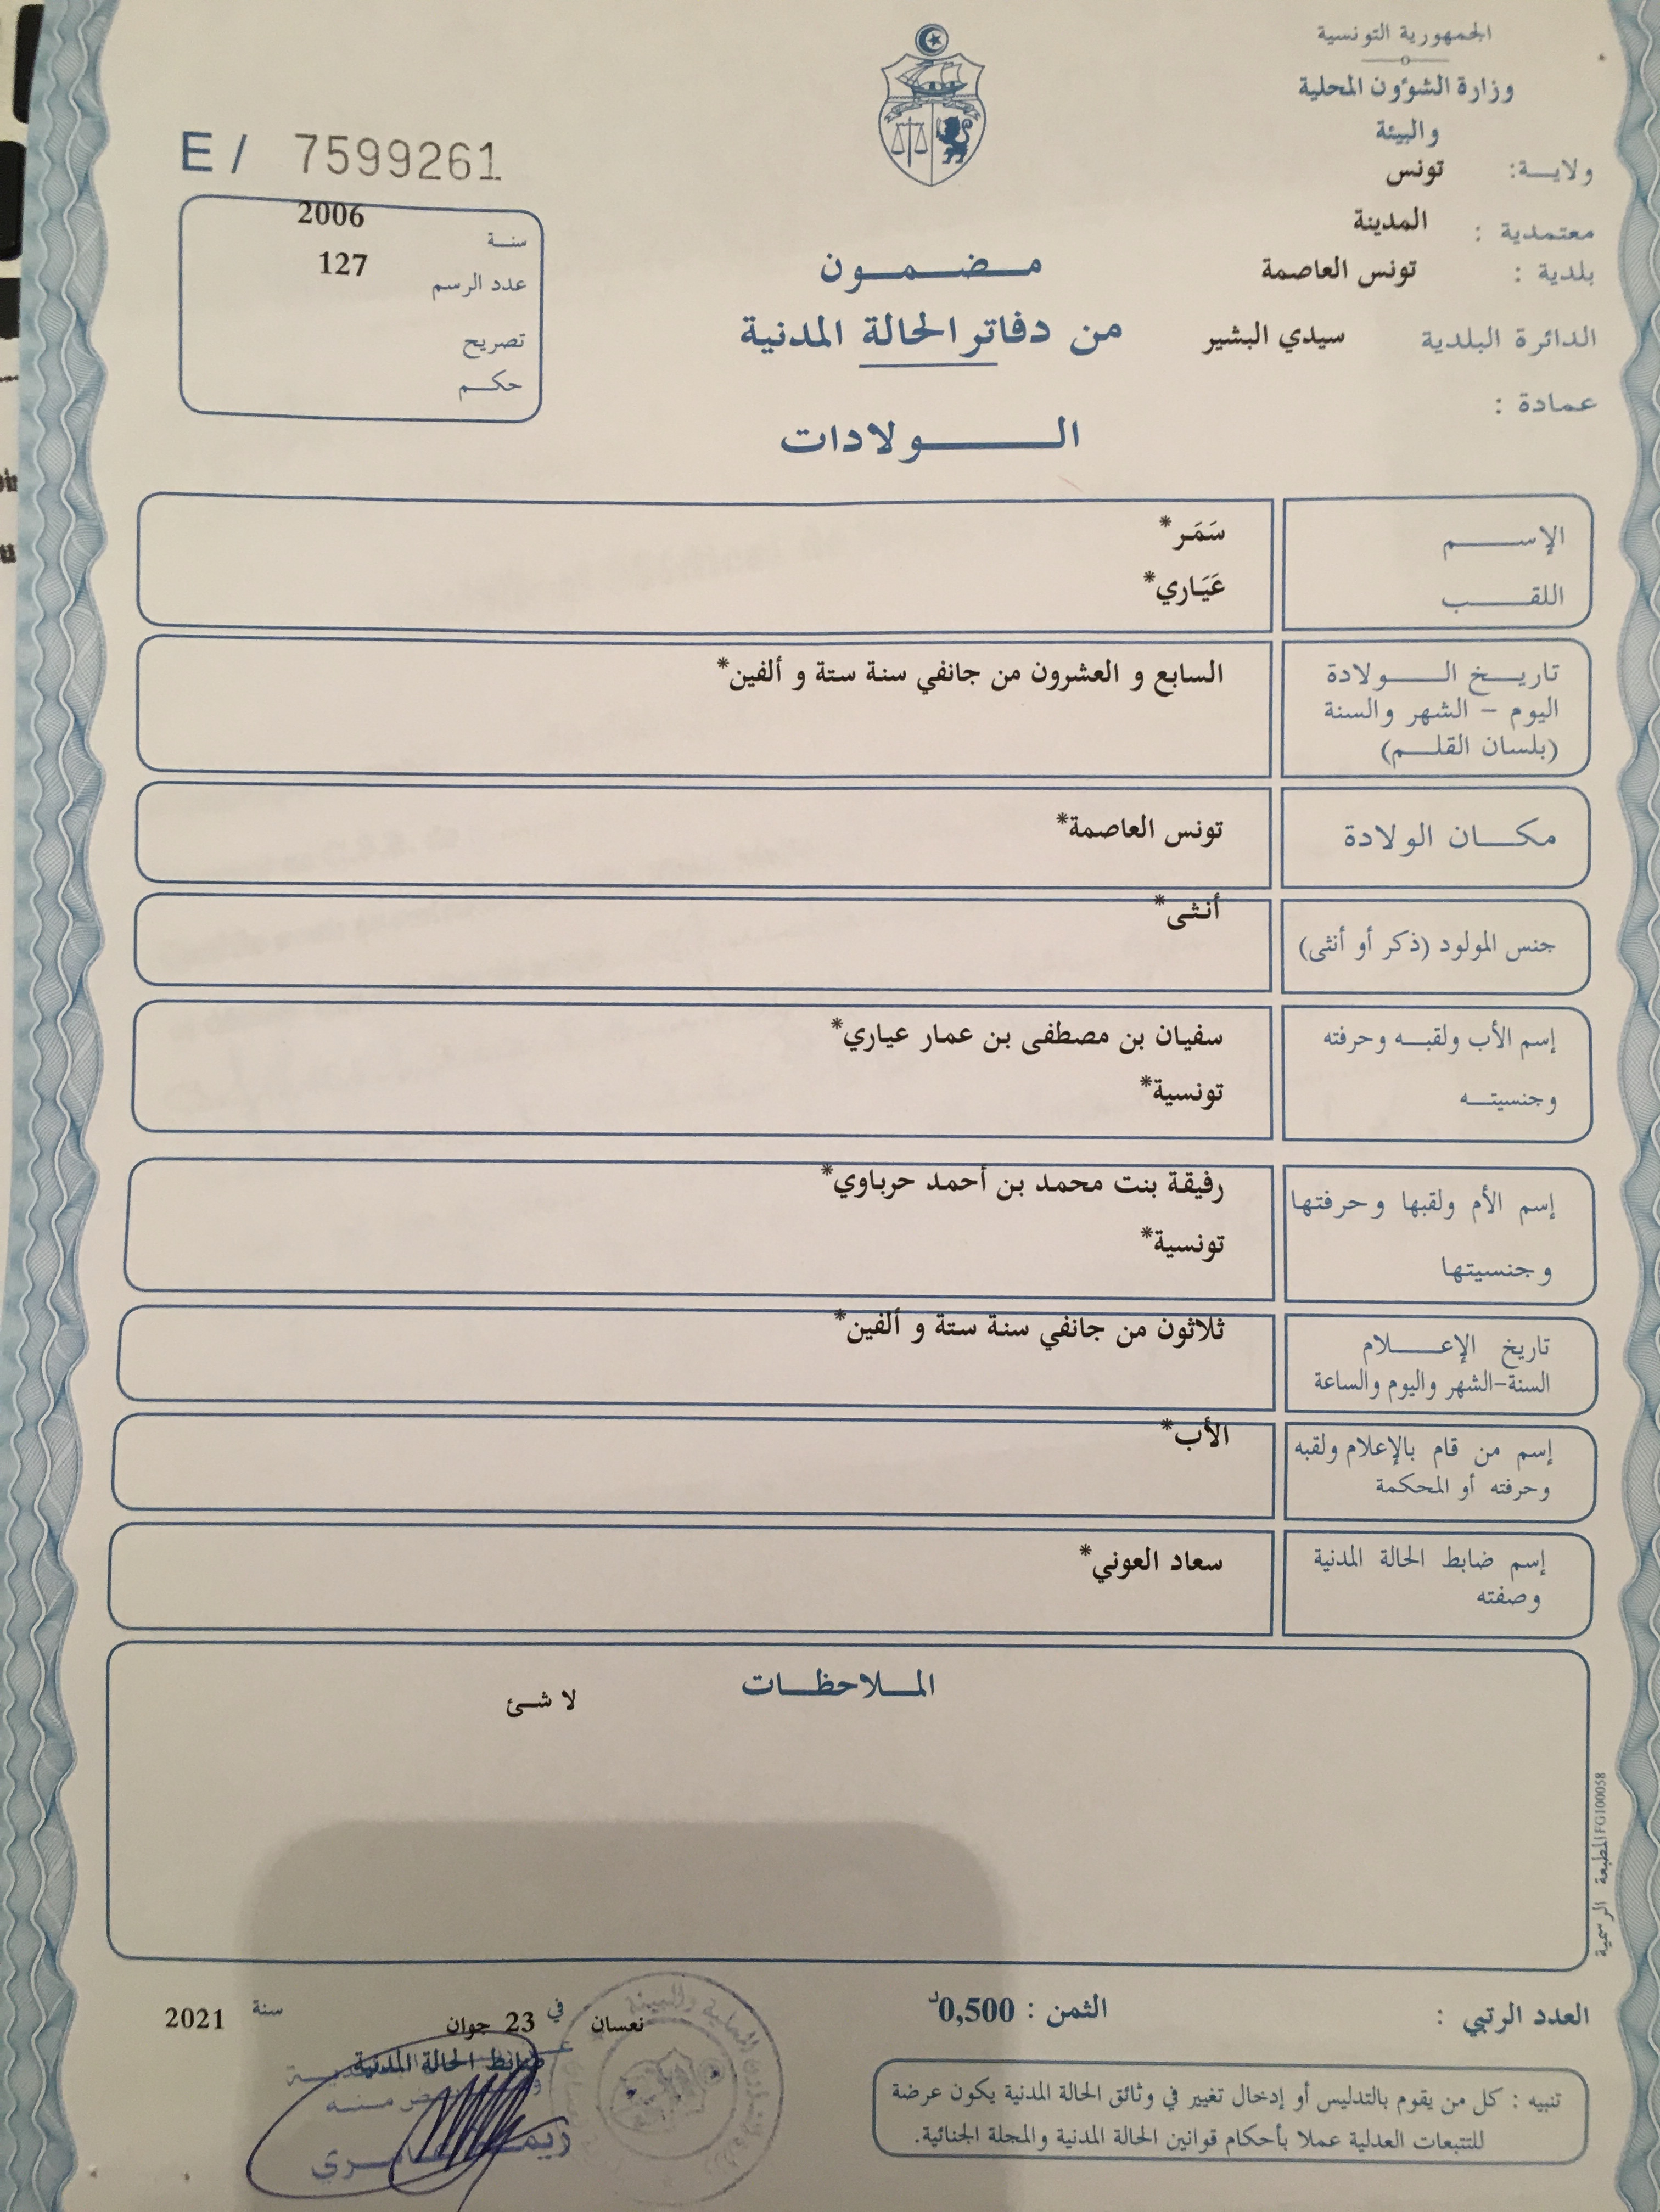 الجمهورية التونسية
وزارة الشؤون المحلية
والبيئة
ولايـــة: تونس
معتمدية : المدينة
بلدية : تونس العاصمة
الدائرة البلدية سيدي البشير
عمادة :
مـضـمـون
من دفاتر الحالة المدنية
الـــولادات
E / 7599261
سنـة 2006
عدد الرسم 127
تصريح
حكـم
الإســـم سَمَر*
اللقـــب عَيَاري*
تاريـخ الـــولادة السابع و العشرون من جانفي سنة ستة و ألفين*
اليوم – الشهر والسنة
(بلسان القلـم)
مكـان الولادة تونس العاصمة*
جنس المولود (ذكر أو أنثى) أنثى*
إسم الأب ولقبـه وحرفته سفيان بن مصطفى بن عمار عياري*
وجنسيتـه تونسية*
إسم الأم ولقبها وحرفتها رفيقة بنت محمد بن أحمد حرباوي*
وجنسيتها تونسية*
تاريخ الإعـــلام ثلاثون من جانفي سنة ستة و ألفين*
السنة–الشهر واليوم والساعة
إسم من قام بالإعلام ولقبه الأب*
وحرفته أو المحكمة
إسم ضابط الحالة المدنية سعاد العوني*
وصفته
المـلاحظـات
لا شئ
المطبعة الرسمية FG100058
العدد الرتبي : الثمن : 0,500د
نعسان في 23 جوان سنة 2021
ضابط الحالة المدنية
تنبيه : كل من يقوم بالتدليس أو إدخال تغيير في وثائق الحالة المدنية يكون عرضة
للتتبعات العدلية عملا بأحكام قوانين الحالة المدنية والمجلة الجنائية.